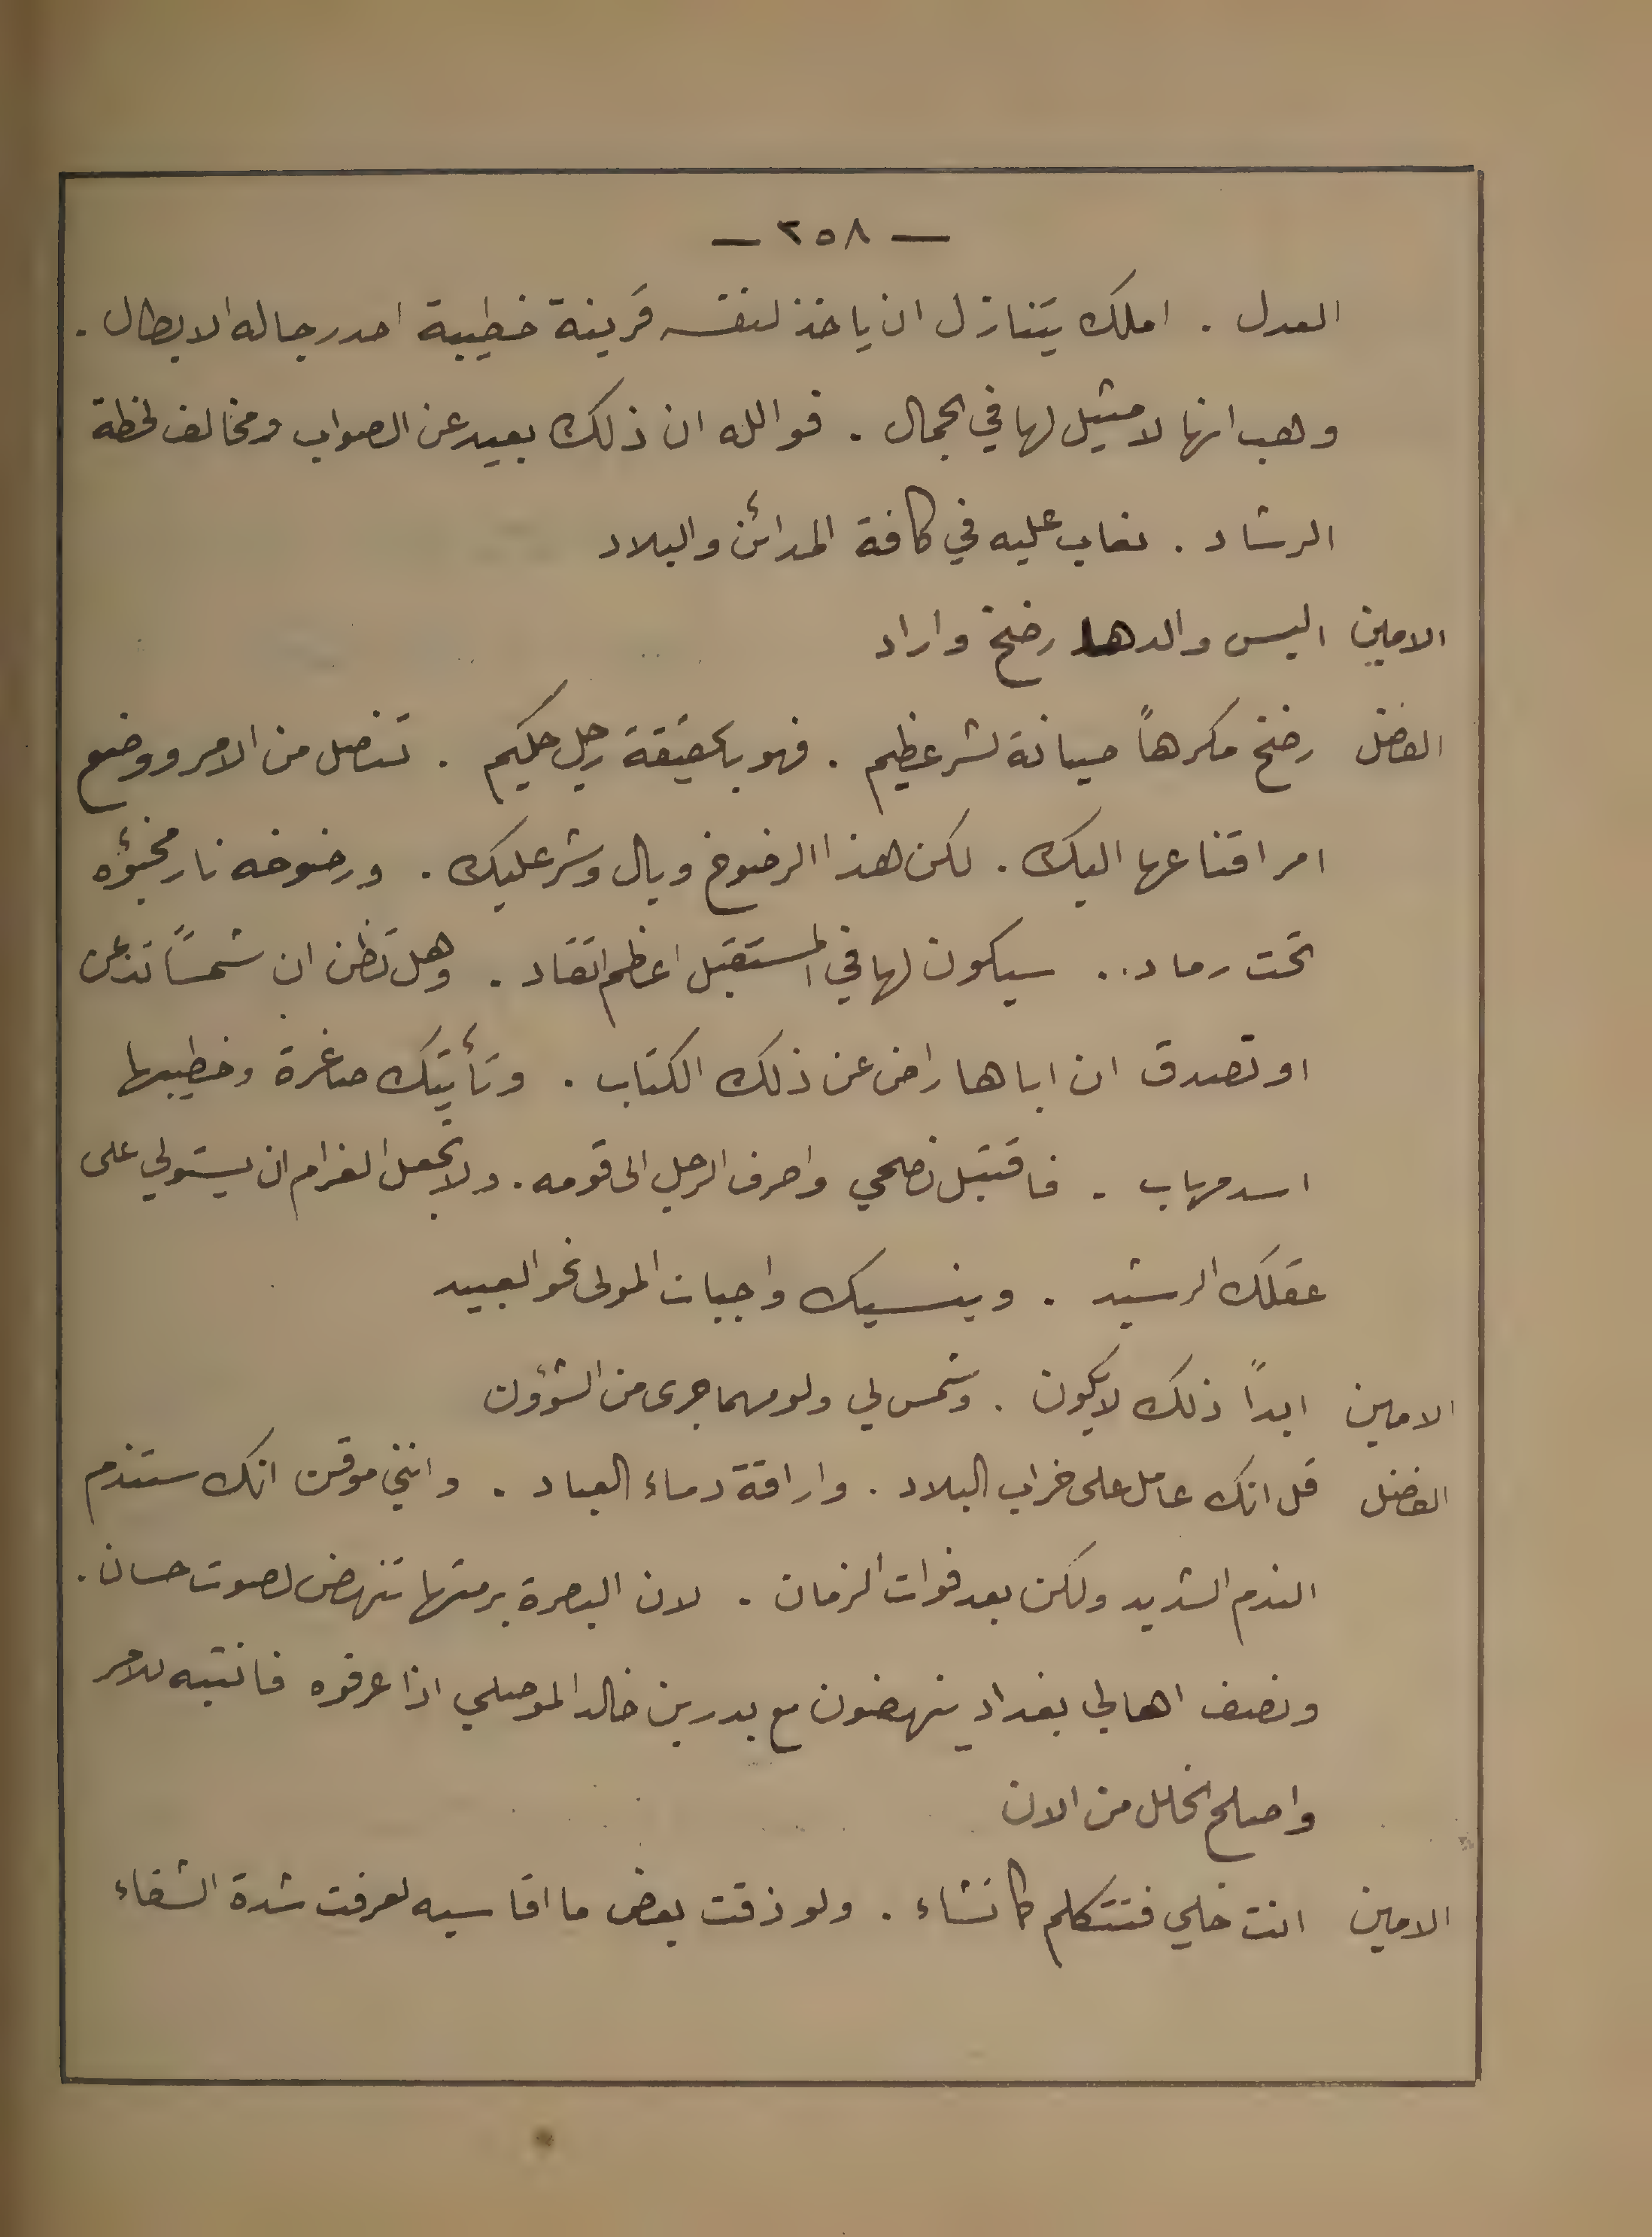 — ٢٥٨ —
العدل . املك يتنازل ان ياخذ لنفسه قرينة خطيبة احد رجاله الابطال .
وهب انها لا مثيل لها في الجمال . فوالله ان ذلك بعيد عن الصواب ومخالف لخطة
الرشاد . نعاب عليه في كافة المدائن والبلاد
الامين اليس والدها رضخ واراد
الفضل رضخ مكرهاً صيانة لشر عظيم . فهو بالحقيقة رجل حكيم . تنصل من الامر ووضع
امر اقناعها اليك . لكن هذا الرضوخ وبال وشر عليك . ورضوخه نار مخبؤه
تحت رماد .. سيكون لها في المستقبل اعظم اتقاد . وهل تظن ان شمساً تذعن
او تصدق ان اباها راض عن ذلك الكتاب . وتأتيك صاغرة وخطيبها
اسد مهاب . فاقتبل نصحي واصرف الرجل الى قومه . ولا تجعل الغرام ان يستولي على
عقلك الرشيد . وينسيك واجبات المولى نحو العبيد
الامين ابداً ذلك لا يكون . وشمس لي ولو مهما جرى من الشؤون
الفضل قل انك عامل على خراب البلاد . واراقة دماء العباد . وانني موقن انك ستندم
الندم الشديد ولكن بعد فوات الزمان . لان البصرة برمتها تنهض لصوت حسان .
ونصف اهالي بغداد ينهضون مع بدر بن خالد الموصلي اذا عرفوه فانتبه للامر
واصلح الخلل من الان
الامين انت خلي فتتكلم كما تشاء . ولو ذقت بعض ما اقاسيه لعرفت شدة الشقاء